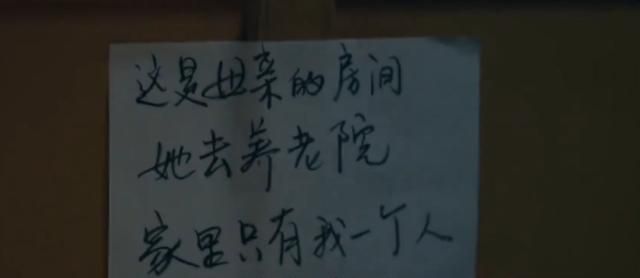 这是母亲的房间
她去养老院
家里只有我一个人